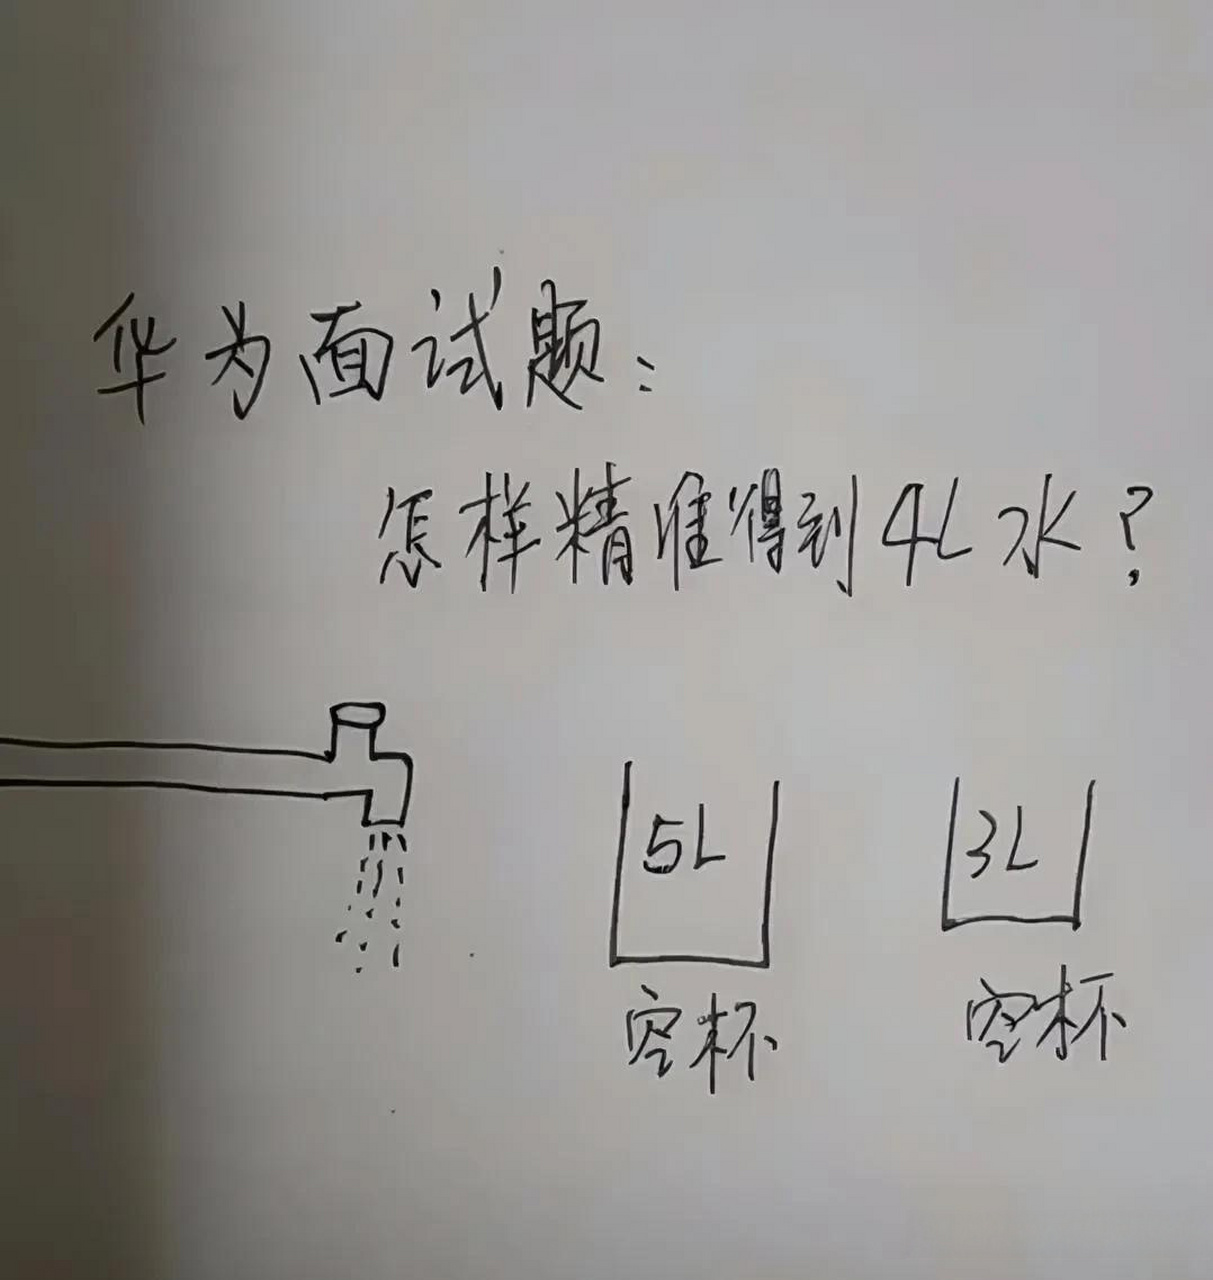 华为面试题：
怎样精准得到4L水？
5L
3L
空杯
空杯